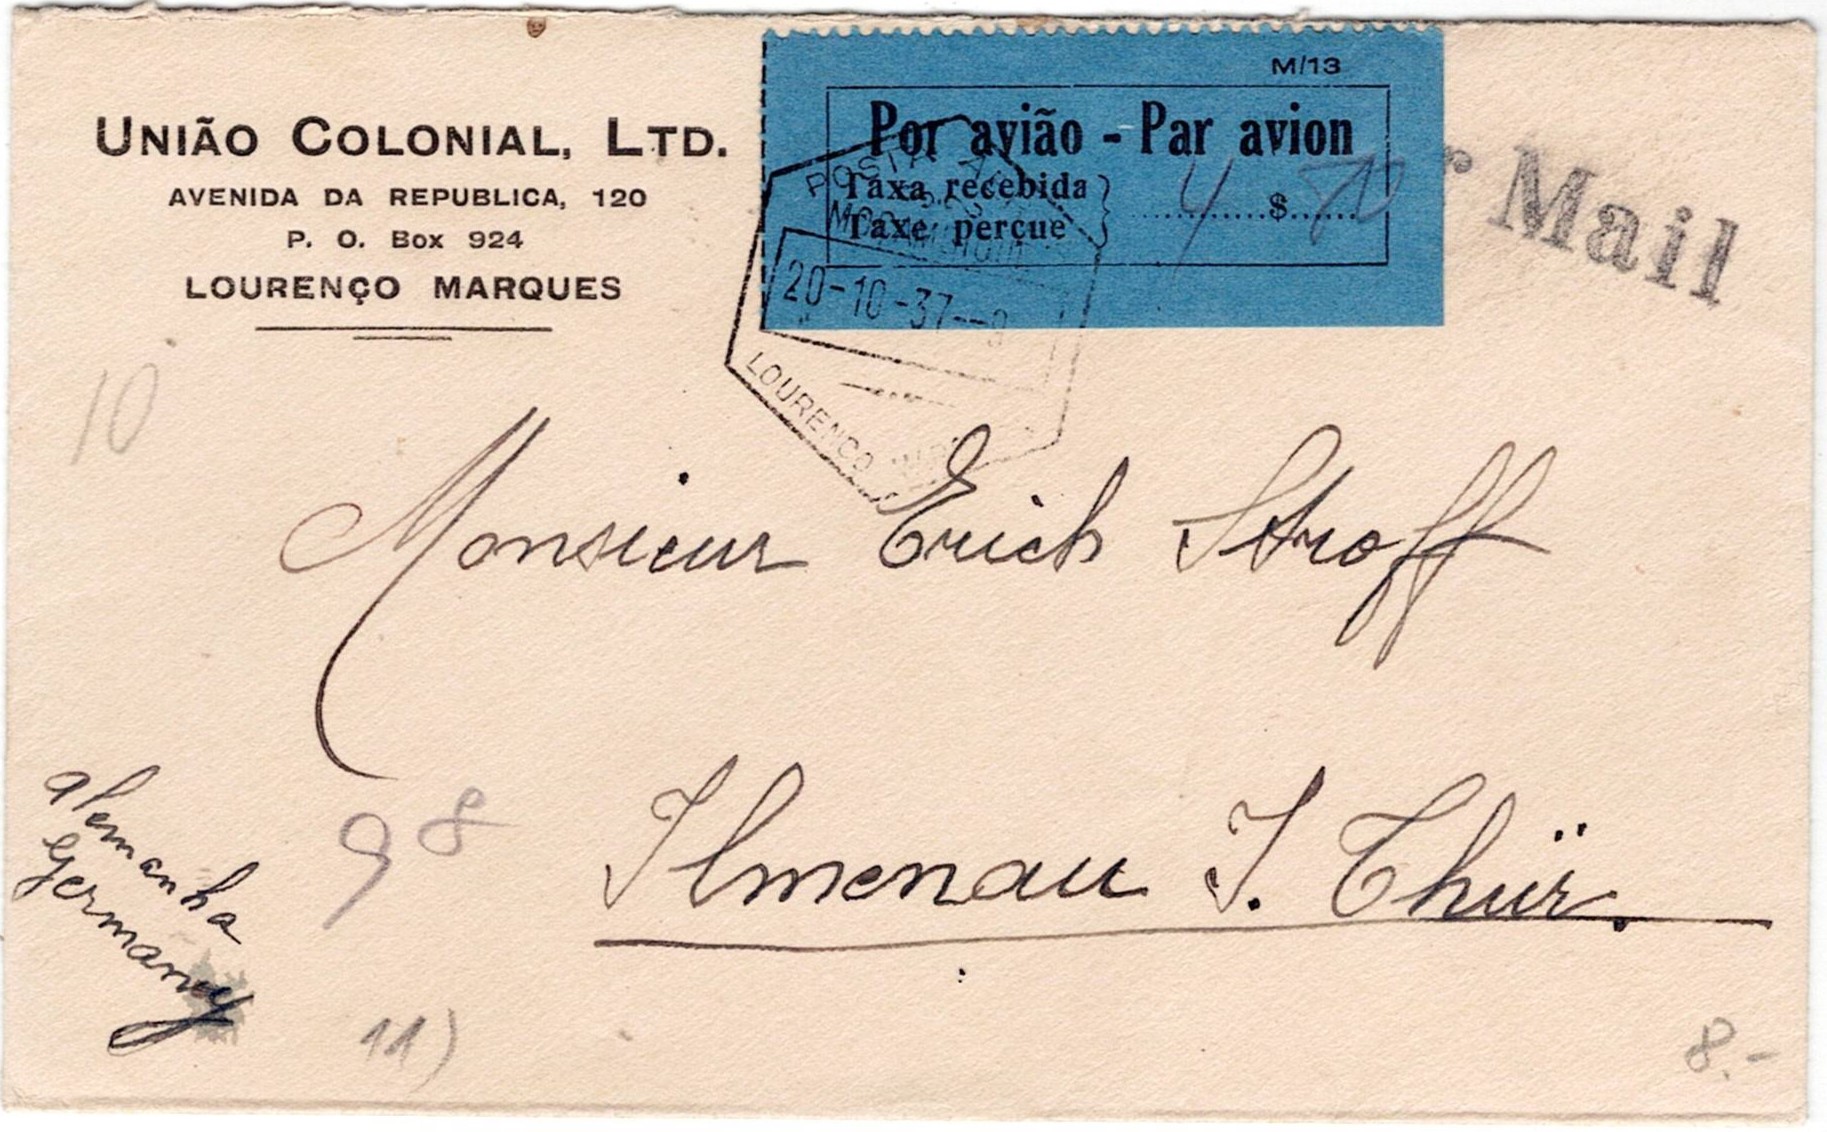 UNIÃO COLONIAL, LTD.
AVENIDA DA REPUBLICA, 120
P. O. Box 924
LOURENÇO MARQUES
M/13
Por avião - Par avion
Taxa recebida
Taxe perçue
4 $ 80
r Mail
20-10-37
LOURENÇO
10
Monsieur Erich Stroff
Ilmenau I. Thür.
Alemanha
Germany
98
11)
8.-